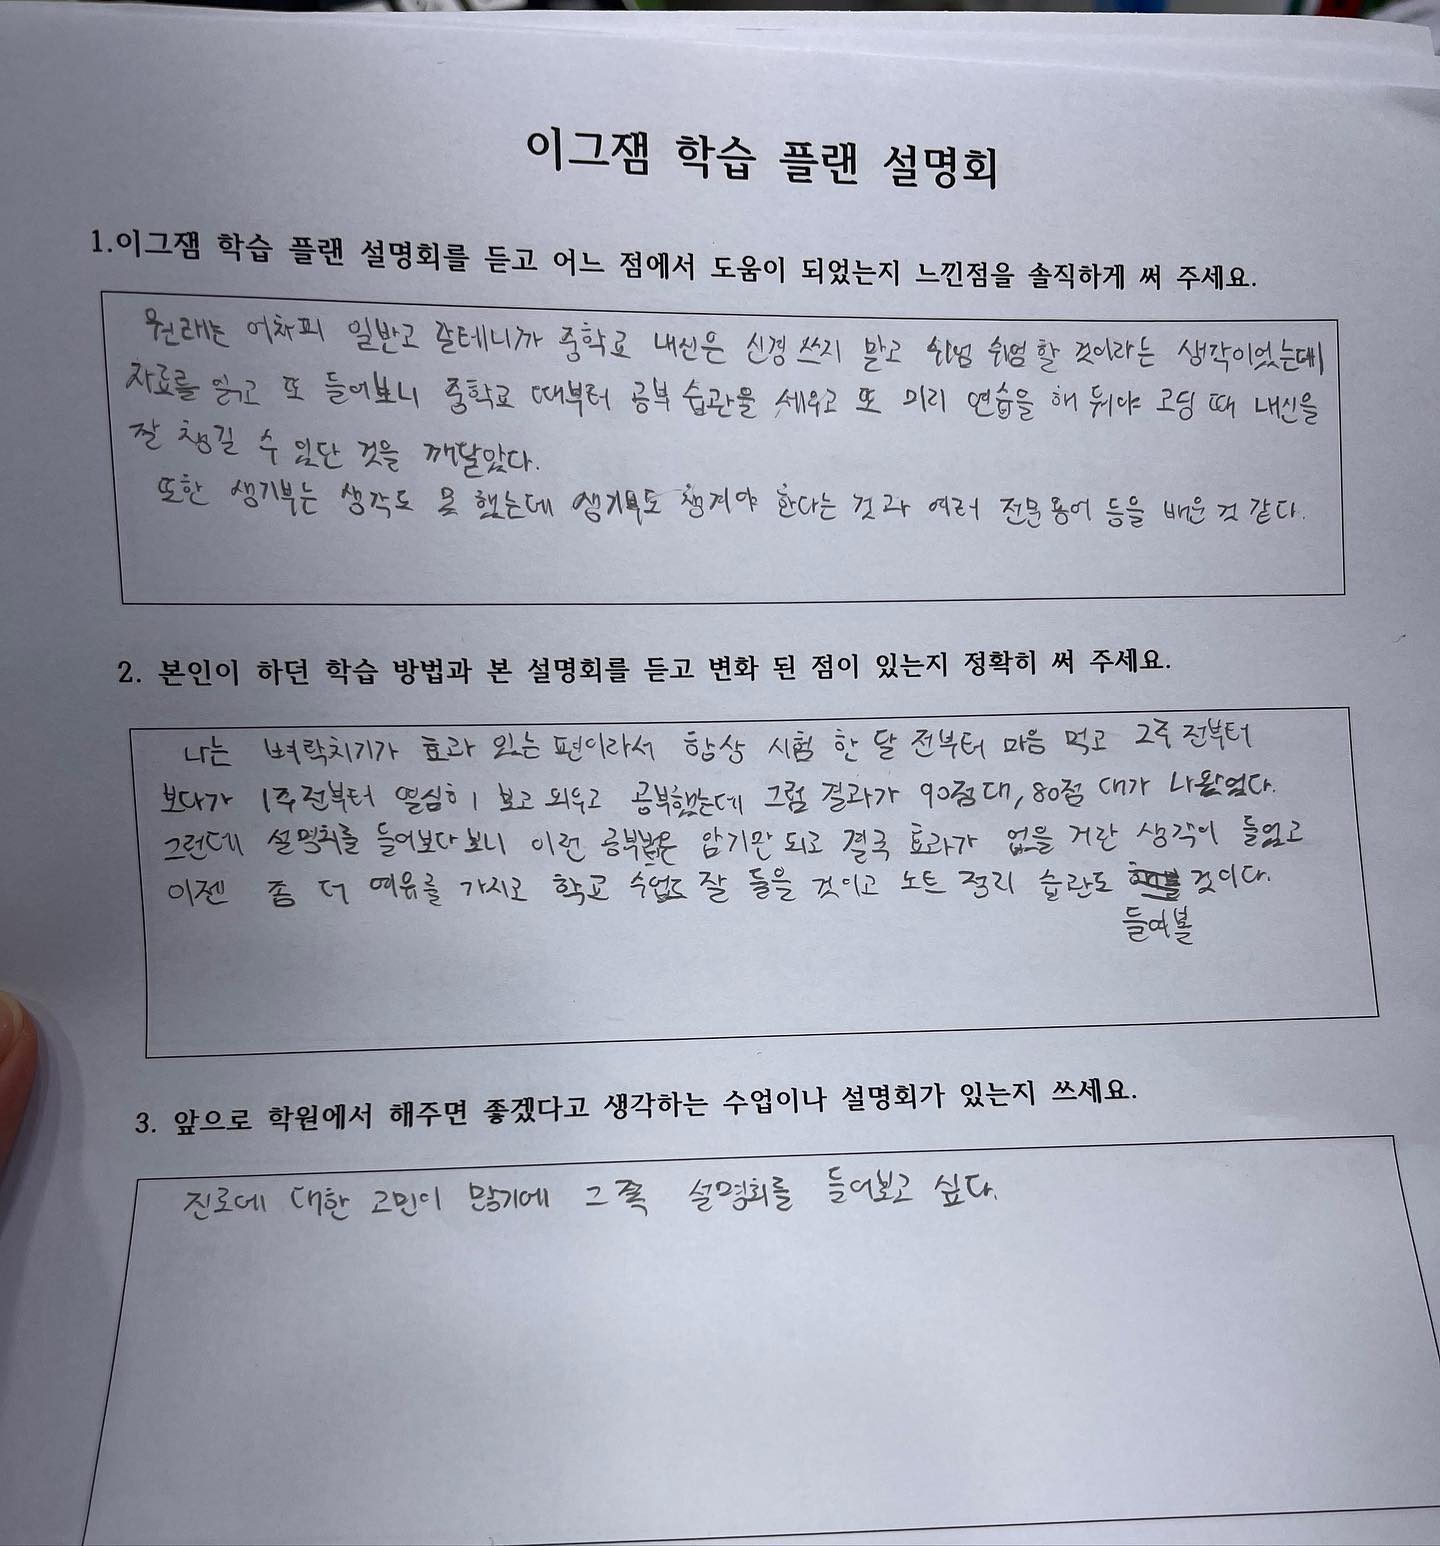 이그잼 학습 플랜 설명회
1.이그잼 학습 플랜 설명회를 듣고 어느 점에서 도움이 되었는지 느낀점을 솔직하게 써 주세요.
원래는 어차피 일반고 갈테니까 중학교 내신은 신경 쓰지 말고 쉬엄 쉬엄 할 것이라는 생각이었는데
자료를 읽고 또 들어보니 중학교 때부터 공부 습관을 세우고 또 미리 연습을 해 둬야 고딩 때 내신을
잘 챙길 수 있단 것을 깨달았다.
또한 생기부는 생각도 못 했는데 생기부도 챙겨야 한다는 것과 여러 전문용어 등을 배운 것 같다.
2. 본인이 하던 학습 방법과 본 설명회를 듣고 변화 된 점이 있는지 정확히 써 주세요.
나는 벼락치기가 효과 있는 편이라서 항상 시험 한 달 전부터 마음 먹고 2주 전부터
보다가 1주전부터 열심히 보고 외우고 공부했는데 그럼 결과가 90점대, 80점 대가 나왔었다.
그런데 설명회를 들어보다 보니 이런 공부법은 암기만 되고 결국 효과가 없을 거란 생각이 들었고
이젠 좀 더 여유를 가지고 학교 수업도 잘 들을 것이고 노트 정리 습관도 것이다.
들여볼
3. 앞으로 학원에서 해주면 좋겠다고 생각하는 수업이나 설명회가 있는지 쓰세요.
진로에 대한 고민이 많기에 그 쪽 설명회를 들어보고 싶다.